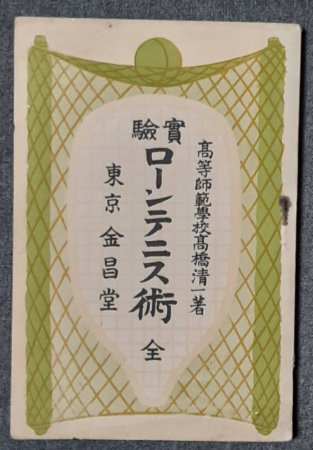 高等師範學校髙橋清一著
實驗
ローンテニス術 全
東京 金昌堂